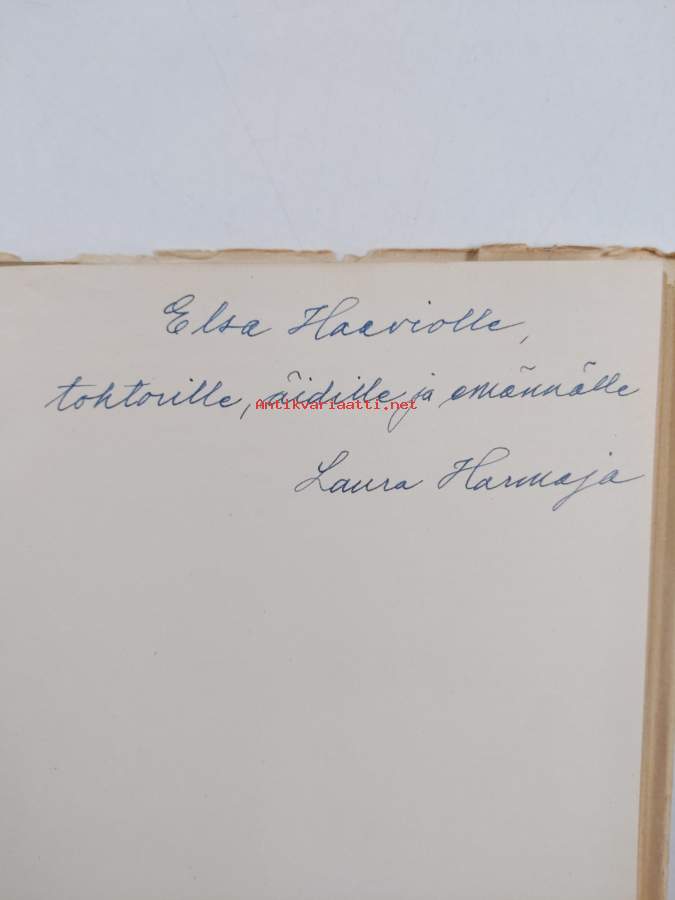 Elsa Haaviolle,
tohtorille, äidille ja emännälle
Antikvariaatti.net
Laura Harmaja